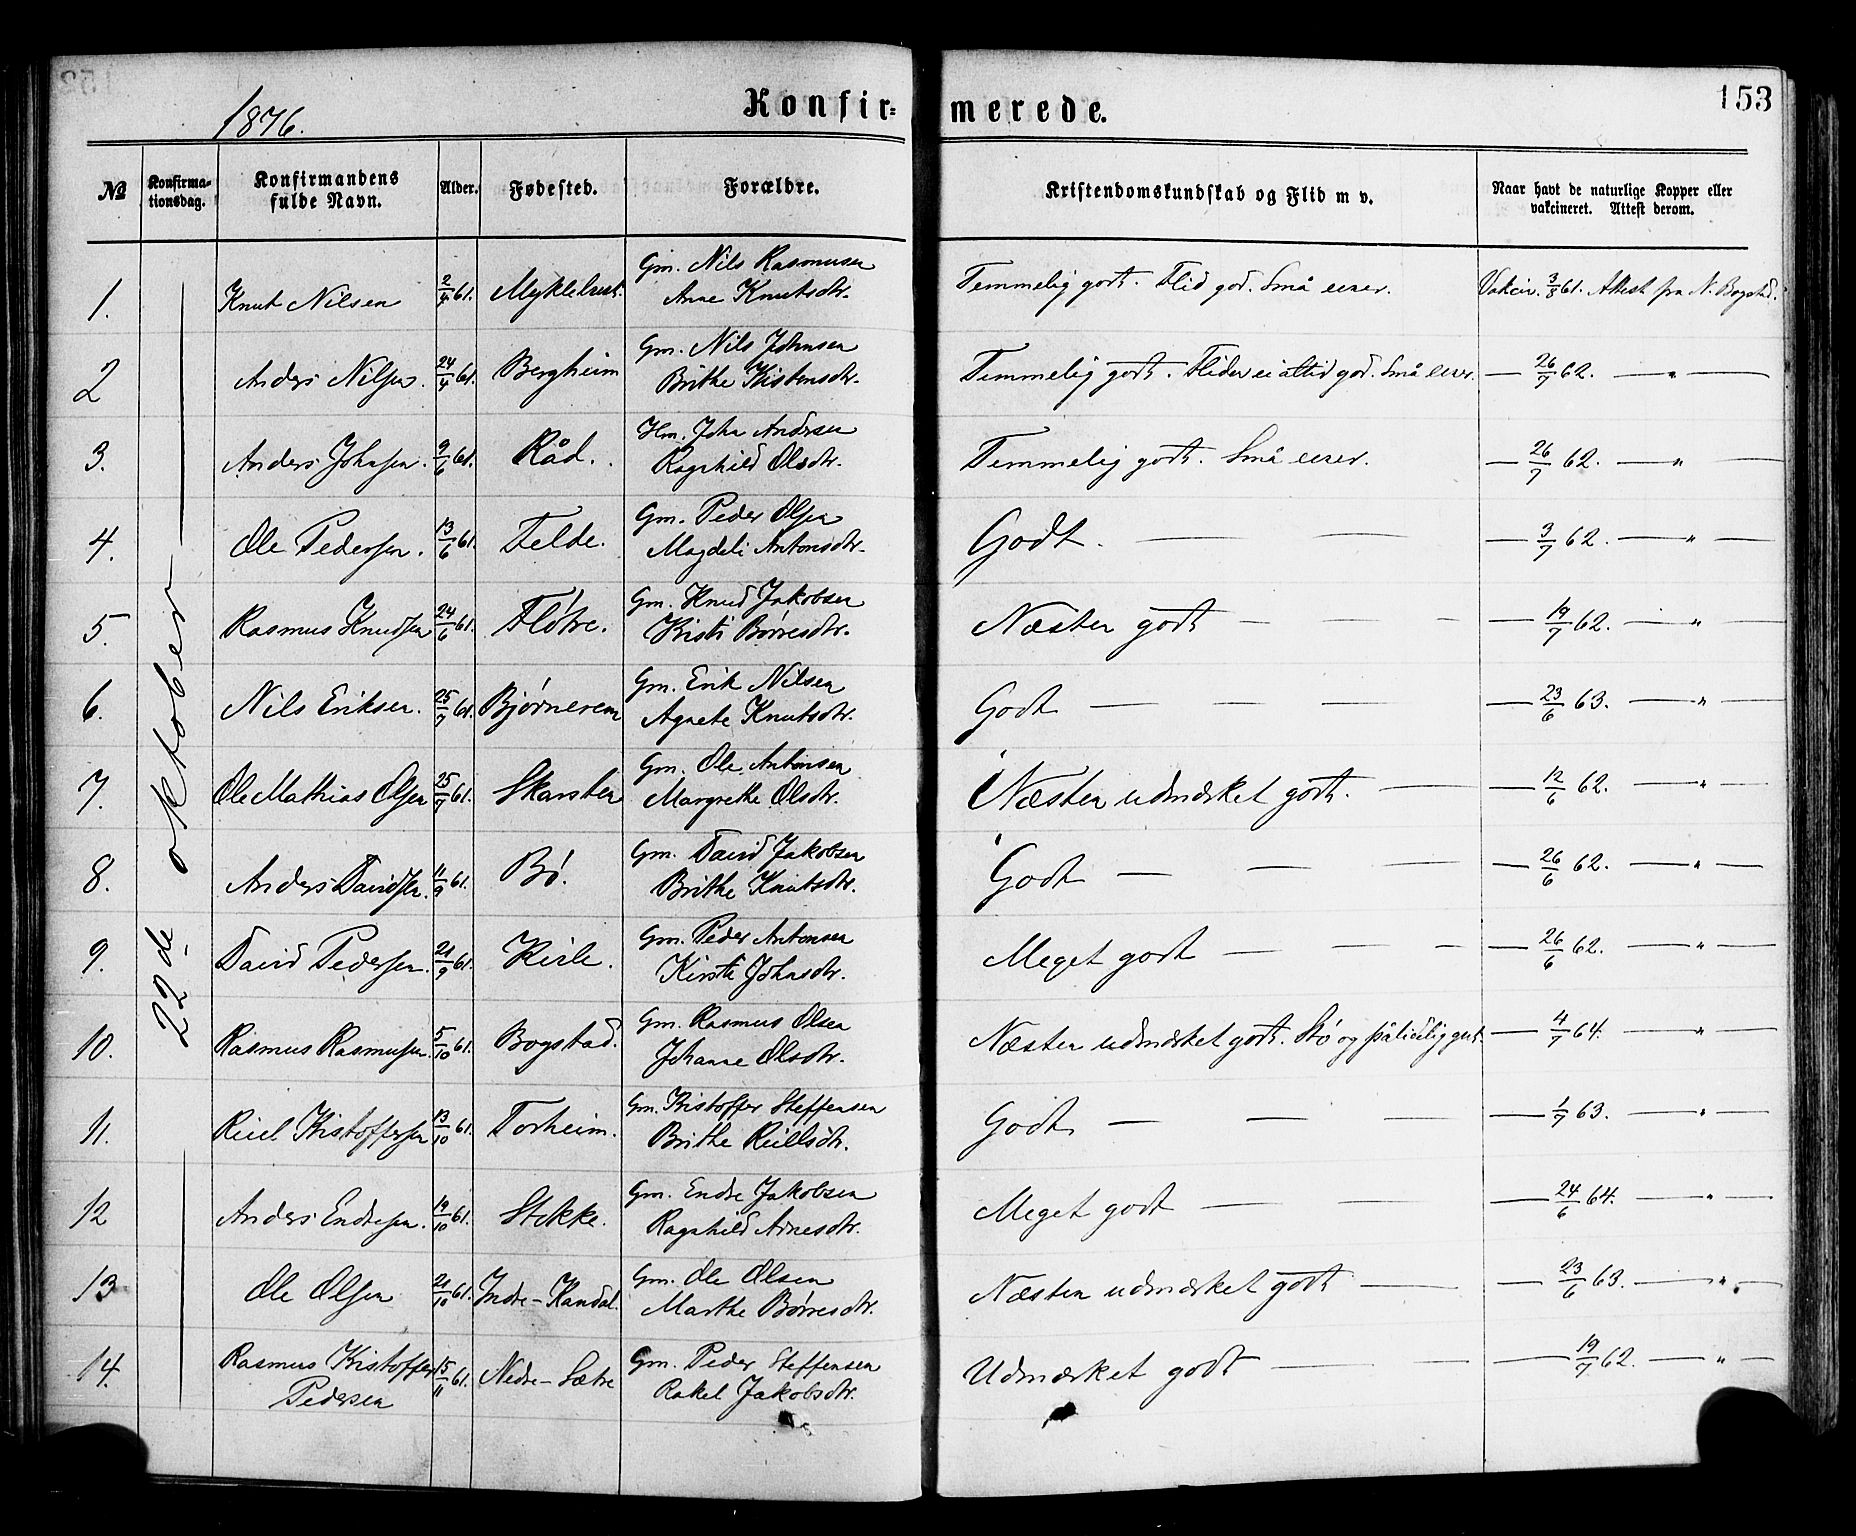 153
1876.
Konfir= merede.
№ Konfirma-tionsdag. Konfirmandens fulde Navn. Alder. Fødested. Forældre. Kristendomskundskab og Flid m v. Naar havt de naturlige Kopper eller vakcineret. Attest derom.
22de oktober
1. Knut Nilsen 2/4 61. Myklebust. Gm. Nils Rasmusen Temmelig godt. Flid god. Små evner. Vakcin. 3/8 61. Attest fra N. Bogstad.
Anne Knutsdtr.
2 Anders Nilsen. 24/4 61. Bergheim Gm. Nils Johnsen Temmelig godt. Fliden ei altid god. Små evner. — 26/7 62. — " —
Brithe Kistensdtr.
3. Anders Johnsen. 9/6 61. Råd. Hm. John Andersen Temmelig godt. Små evner. — 26/7 62. — " —
Ragnhild Olsdtr.
4. Ole Pedersen. 13/6 61. Felde. Gm. Peder Olsen Godt. — — — 3/7 62. — " —
Magdeli Antonsdtr.
5. Rasmus Knudsen 24/6 61. Fløtre. Gm. Knud Jakobsen Næsten godt — — — — 19/7 62. — " —
Kisti Børresdtr.
6. Nils Eriksen. 25/7 61. Bjørnerem Gm. Erik Nilsen Godt — — — — 23/6 63. — " —
Agnete Knutsdtr.
7. Ole Mathias Olsen 25/7 61. Skarsten Gm. Ole Antonsen Næsten udmærket godt. — — 12/6 62. — " —
Margrethe Olsdtr.
8. Anders Davidsen. 11/9 61. Bø. Gm. David Jakobsen Godt — — — — 26/6 62. — " —
Brithe Knutsdtr.
9. David Pedersen. 21/9 61. Kvile. Gm. Peder Antonsen Meget godt — — — — 26/6 62. — " —
Kirsti Johnsdtr.
10. Rasmus Rasmusen. 5/10 61. Bogstad. Gm. Rasmus Olsen Næsten udmærket godt. Stø og pålidelig gut. — 4/7 64. — " —
Johanne Olsdtr.
11. Reiel Kistoffersen 13/10 61. Torheim. Gm. Kistoffer Steffensen Godt — — — — 1/7 63. — " —
Brithe Reielsdtr.
12 Anders Endresen. 19/10 61. Stokke. Gm. Endre Jakobsen Meget godt — — — — 24/6 64. — " —
Ragnhild Arnesdtr.
13 Ole Olsen 21/10 61. Indre-Kandal. Gm. Ole Olsen Næsten udmærket godt — — 23/6 63. — " —
Marthe Børresdtr.
14. Rasmus Kistoffer 15/11 61. Nedre-Sætre Gm. Peder Steffensen Udmærket godt — — — 19/7 62. — " —
Pedersen Rakel Jakobsdtr.